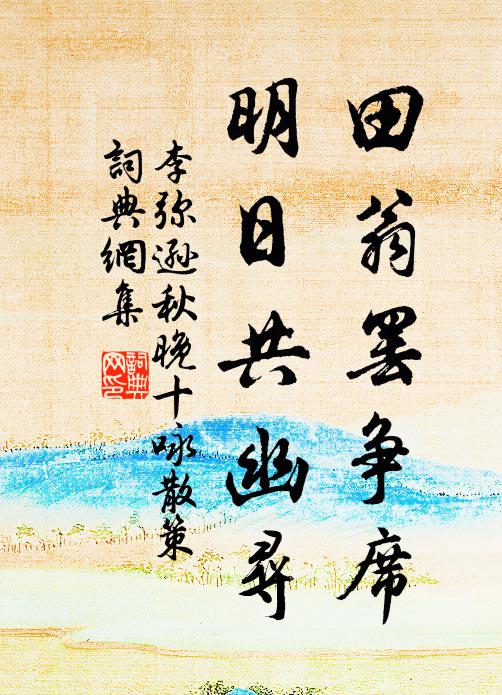 田翁罢争席
明日共幽尋
李弥逊秋晚十咏散策
詞典網集
詞典网印